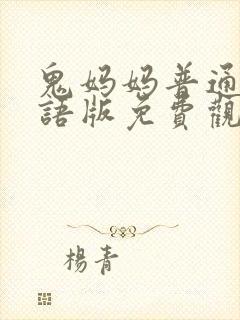 鬼妈妈普通
語版免費觀
楊青